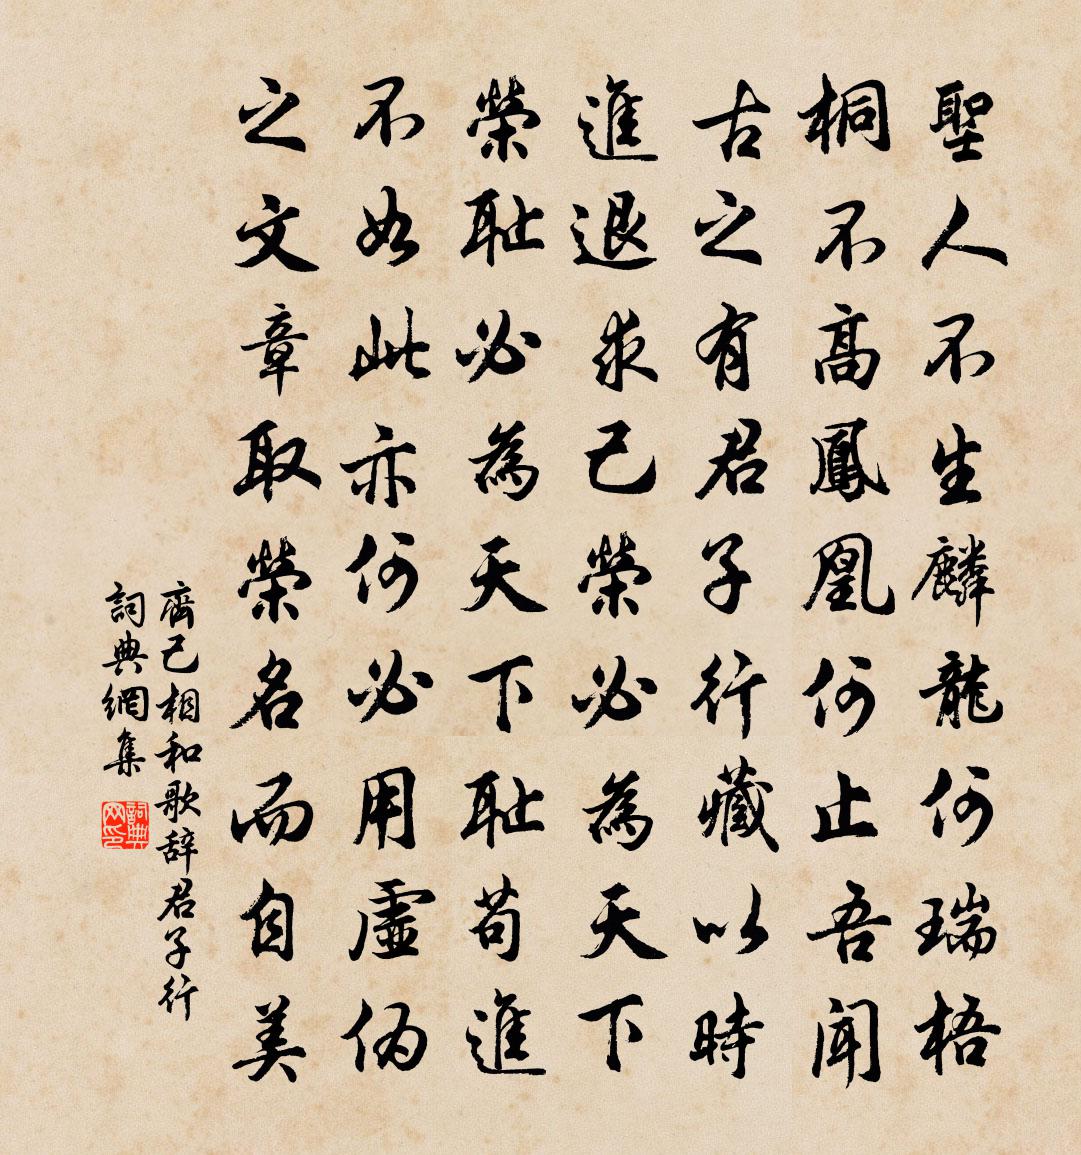 聖人不生麟龍何瑞梧
桐不高鳳凰何止吾聞
古之有君子行藏以時
進退求己榮必為天下
榮耻必為天下耻苟進
不如此亦何必用虛偽
之文章取榮名而自美
齊己相和歌辞君子行
詞典網集
詞典网印